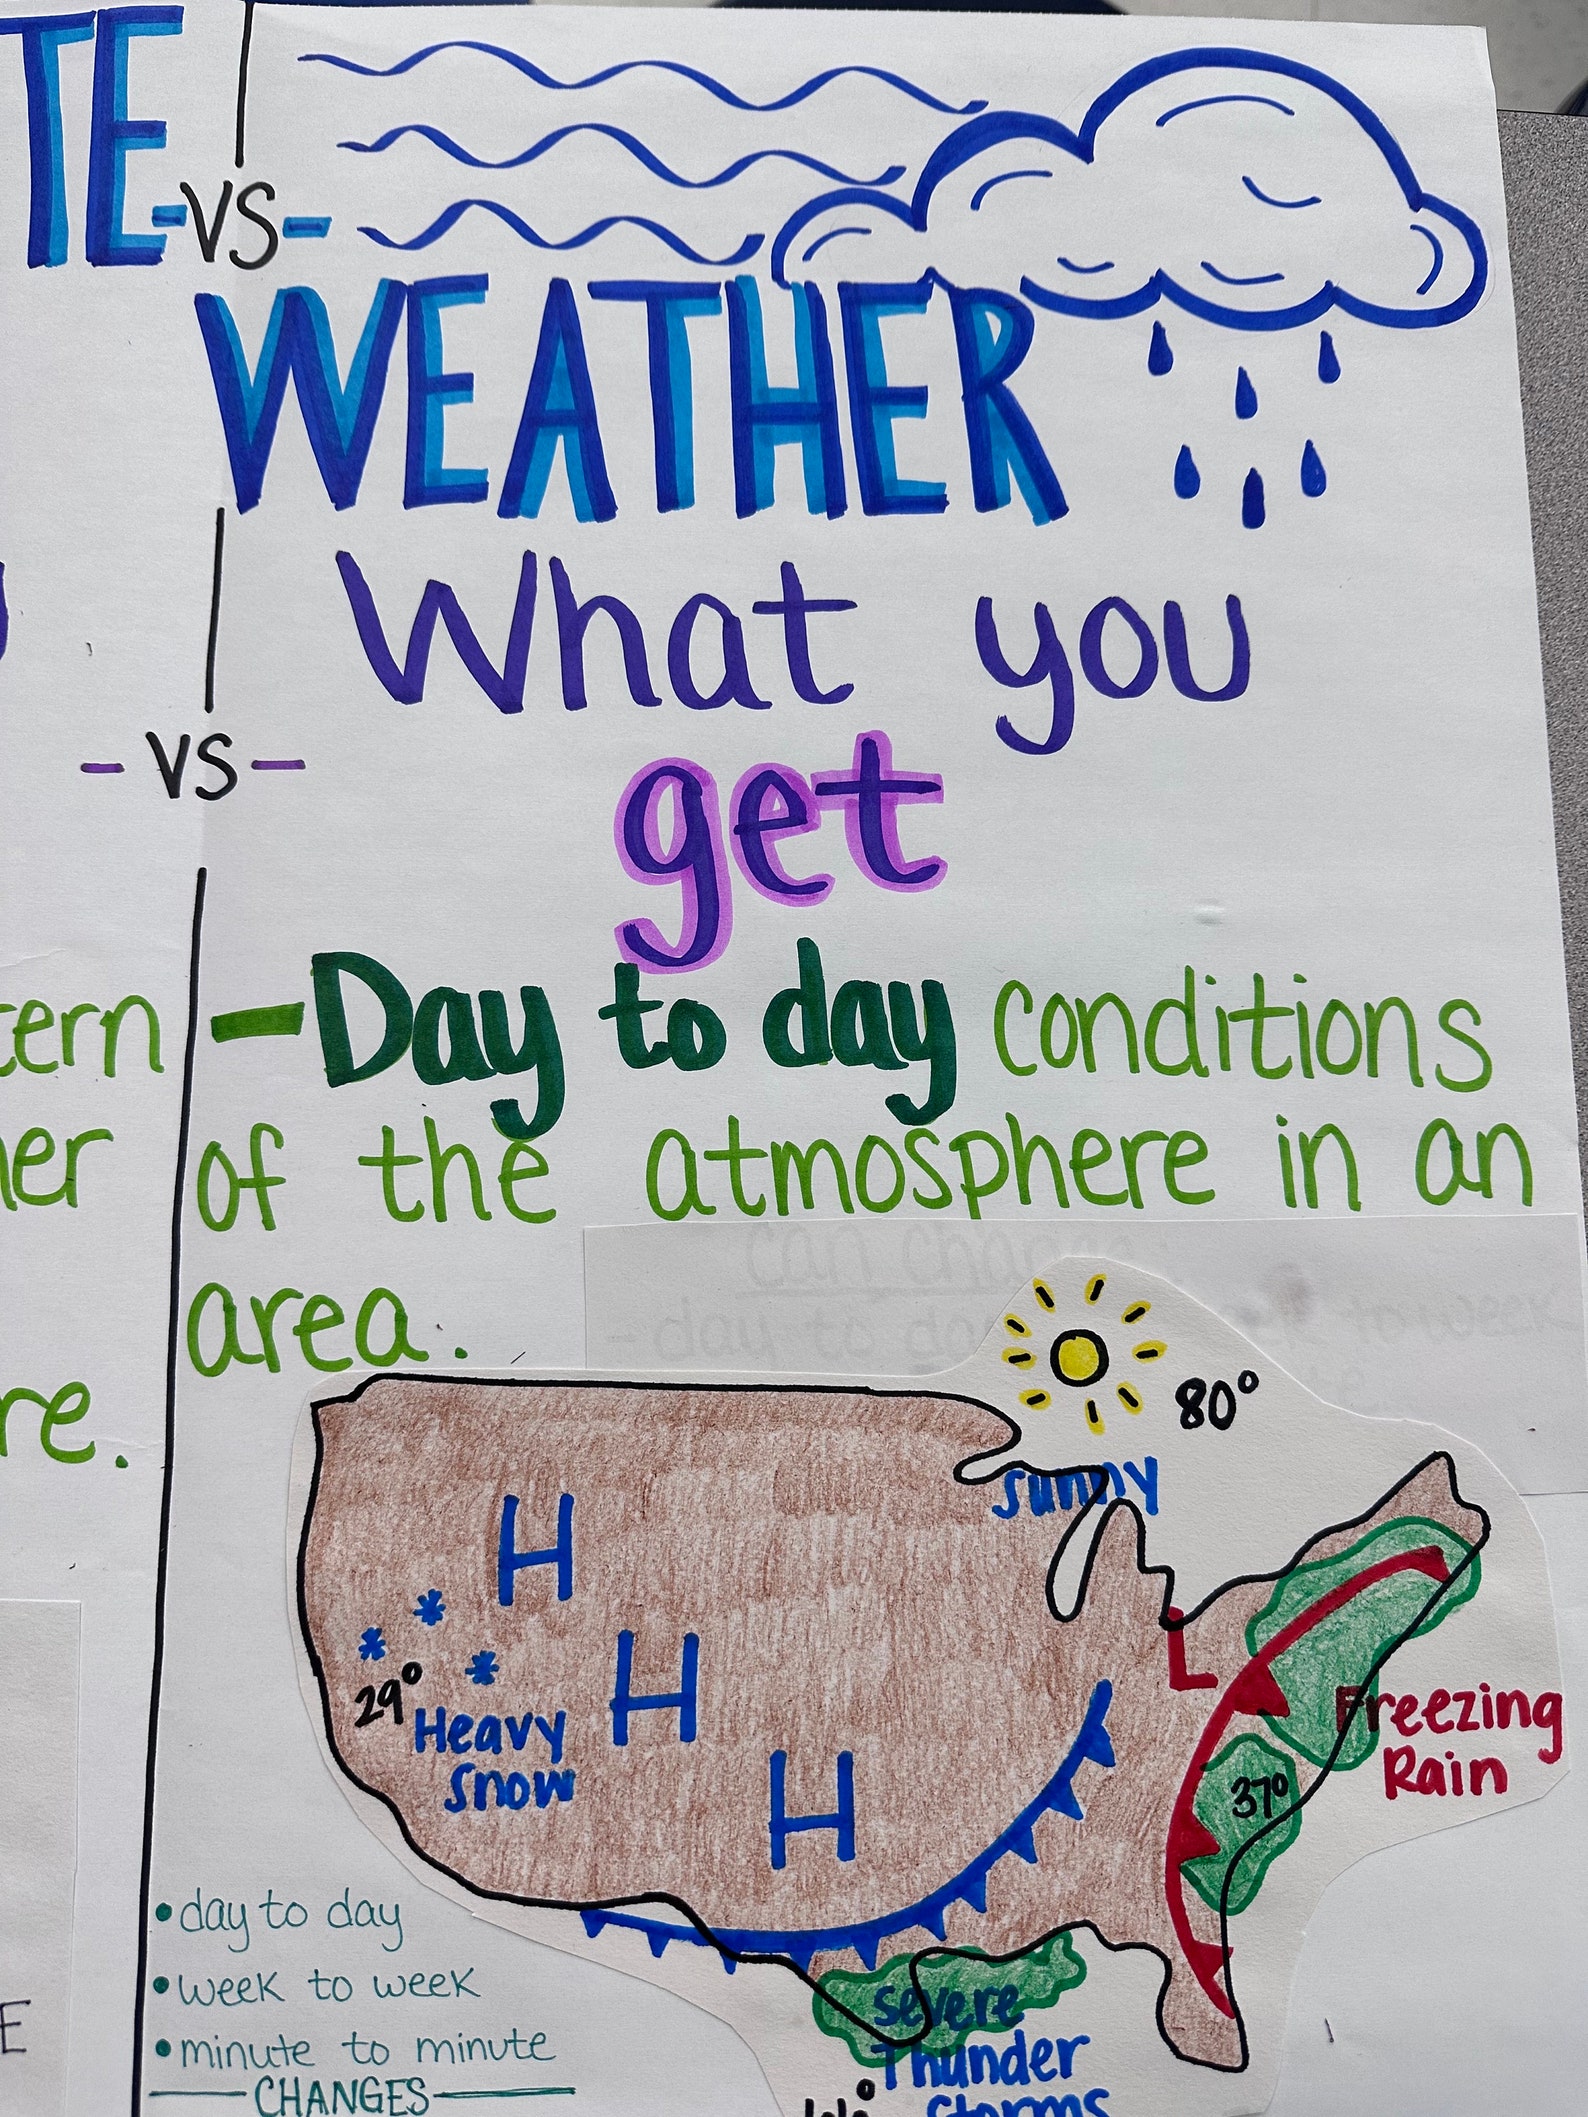 TE
-VS-
WEATHER
What you
-VS-
get
tern
-Day to day conditions
her
of the atmosphere in an
can change
- day to da
area.
re.
80°
sunny
H
H
H
L
29°
Heavy
snow
Freezing
Rain
37°
• day to day
• week to week
• minute to minute
CHANGES
E
severe
Thunder
Storms